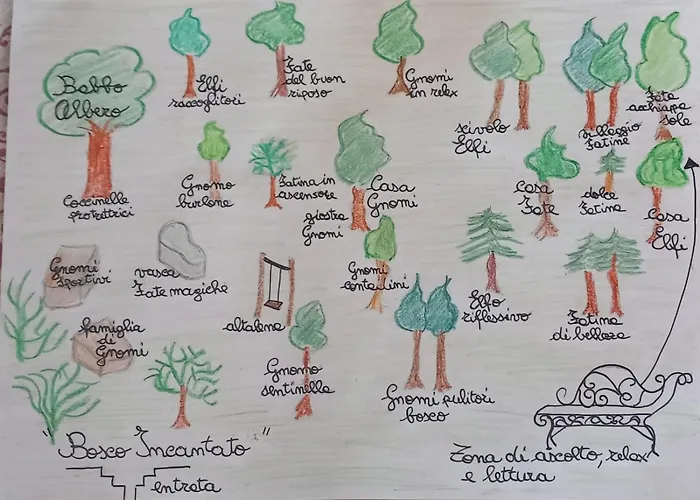 Babbo
Albero
Elfi
raccoglitori
Fate
del buon
riposo
Gnomi
in relax
scivolo
Elfi
villaggio
Fatine
Fate
acchiappa
sole
Coccinelle
protettrici
Gnomo
burlone
Fatina in
ascensore
Casa
Gnomi
giostra
Gnomi
casa
Fate
dolce
Fatina
Casa
Elfi
Gnomi
sportivi
vasca
Fate magiche
altalene
Gnomi
contadini
Elfo
riflessivo
Fatine
di bellezza
famiglia
di
Gnomi
Gnomo
sentinella
Gnomi pulitori
bosco
"Bosco Incantato"
entrata
Zona di ascolto, relax
e lettura